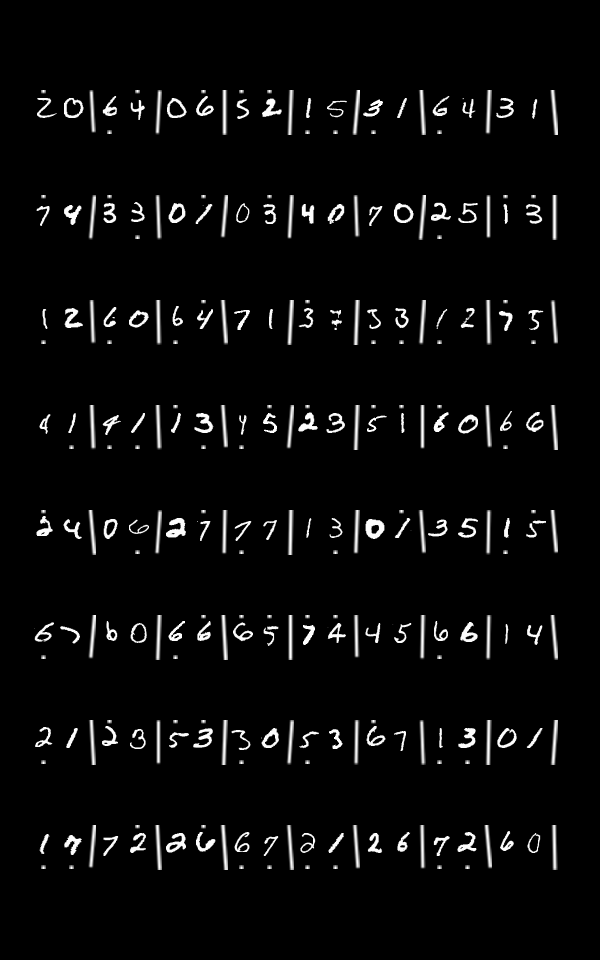 2 0 | 6 4 | 0 6 | 5 2 | 1 5 | 3 1 | 6 4 | 3 1 |
7 4 | 3 3 | 0 1 | 0 3 | 4 0 | 7 0 | 2 5 | 1 3 |
1 2 | 6 0 | 6 4 | 7 1 | 3 7 | 5 3 | 1 2 | 7 5 |
4 1 | 4 1 | 1 3 | 4 5 | 2 3 | 5 1 | 6 0 | 6 6 |
2 4 | 0 6 | 2 7 | 7 7 | 1 3 | 0 1 | 3 5 | 1 5 |
6 7 | 6 0 | 6 6 | 6 5 | 7 4 | 4 5 | 6 6 | 1 4 |
2 1 | 2 3 | 5 3 | 3 0 | 5 3 | 6 7 | 1 3 | 0 1 |
1 7 | 7 2 | 2 6 | 6 7 | 2 1 | 2 6 | 7 2 | 6 0 |